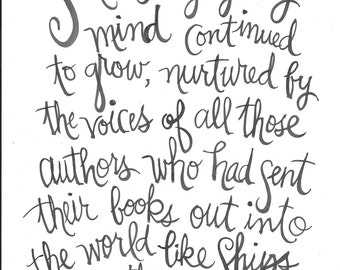 mind continued
to grow, nurtured by
the voices of all those
authors who had sent
their books out into
the world like Ships